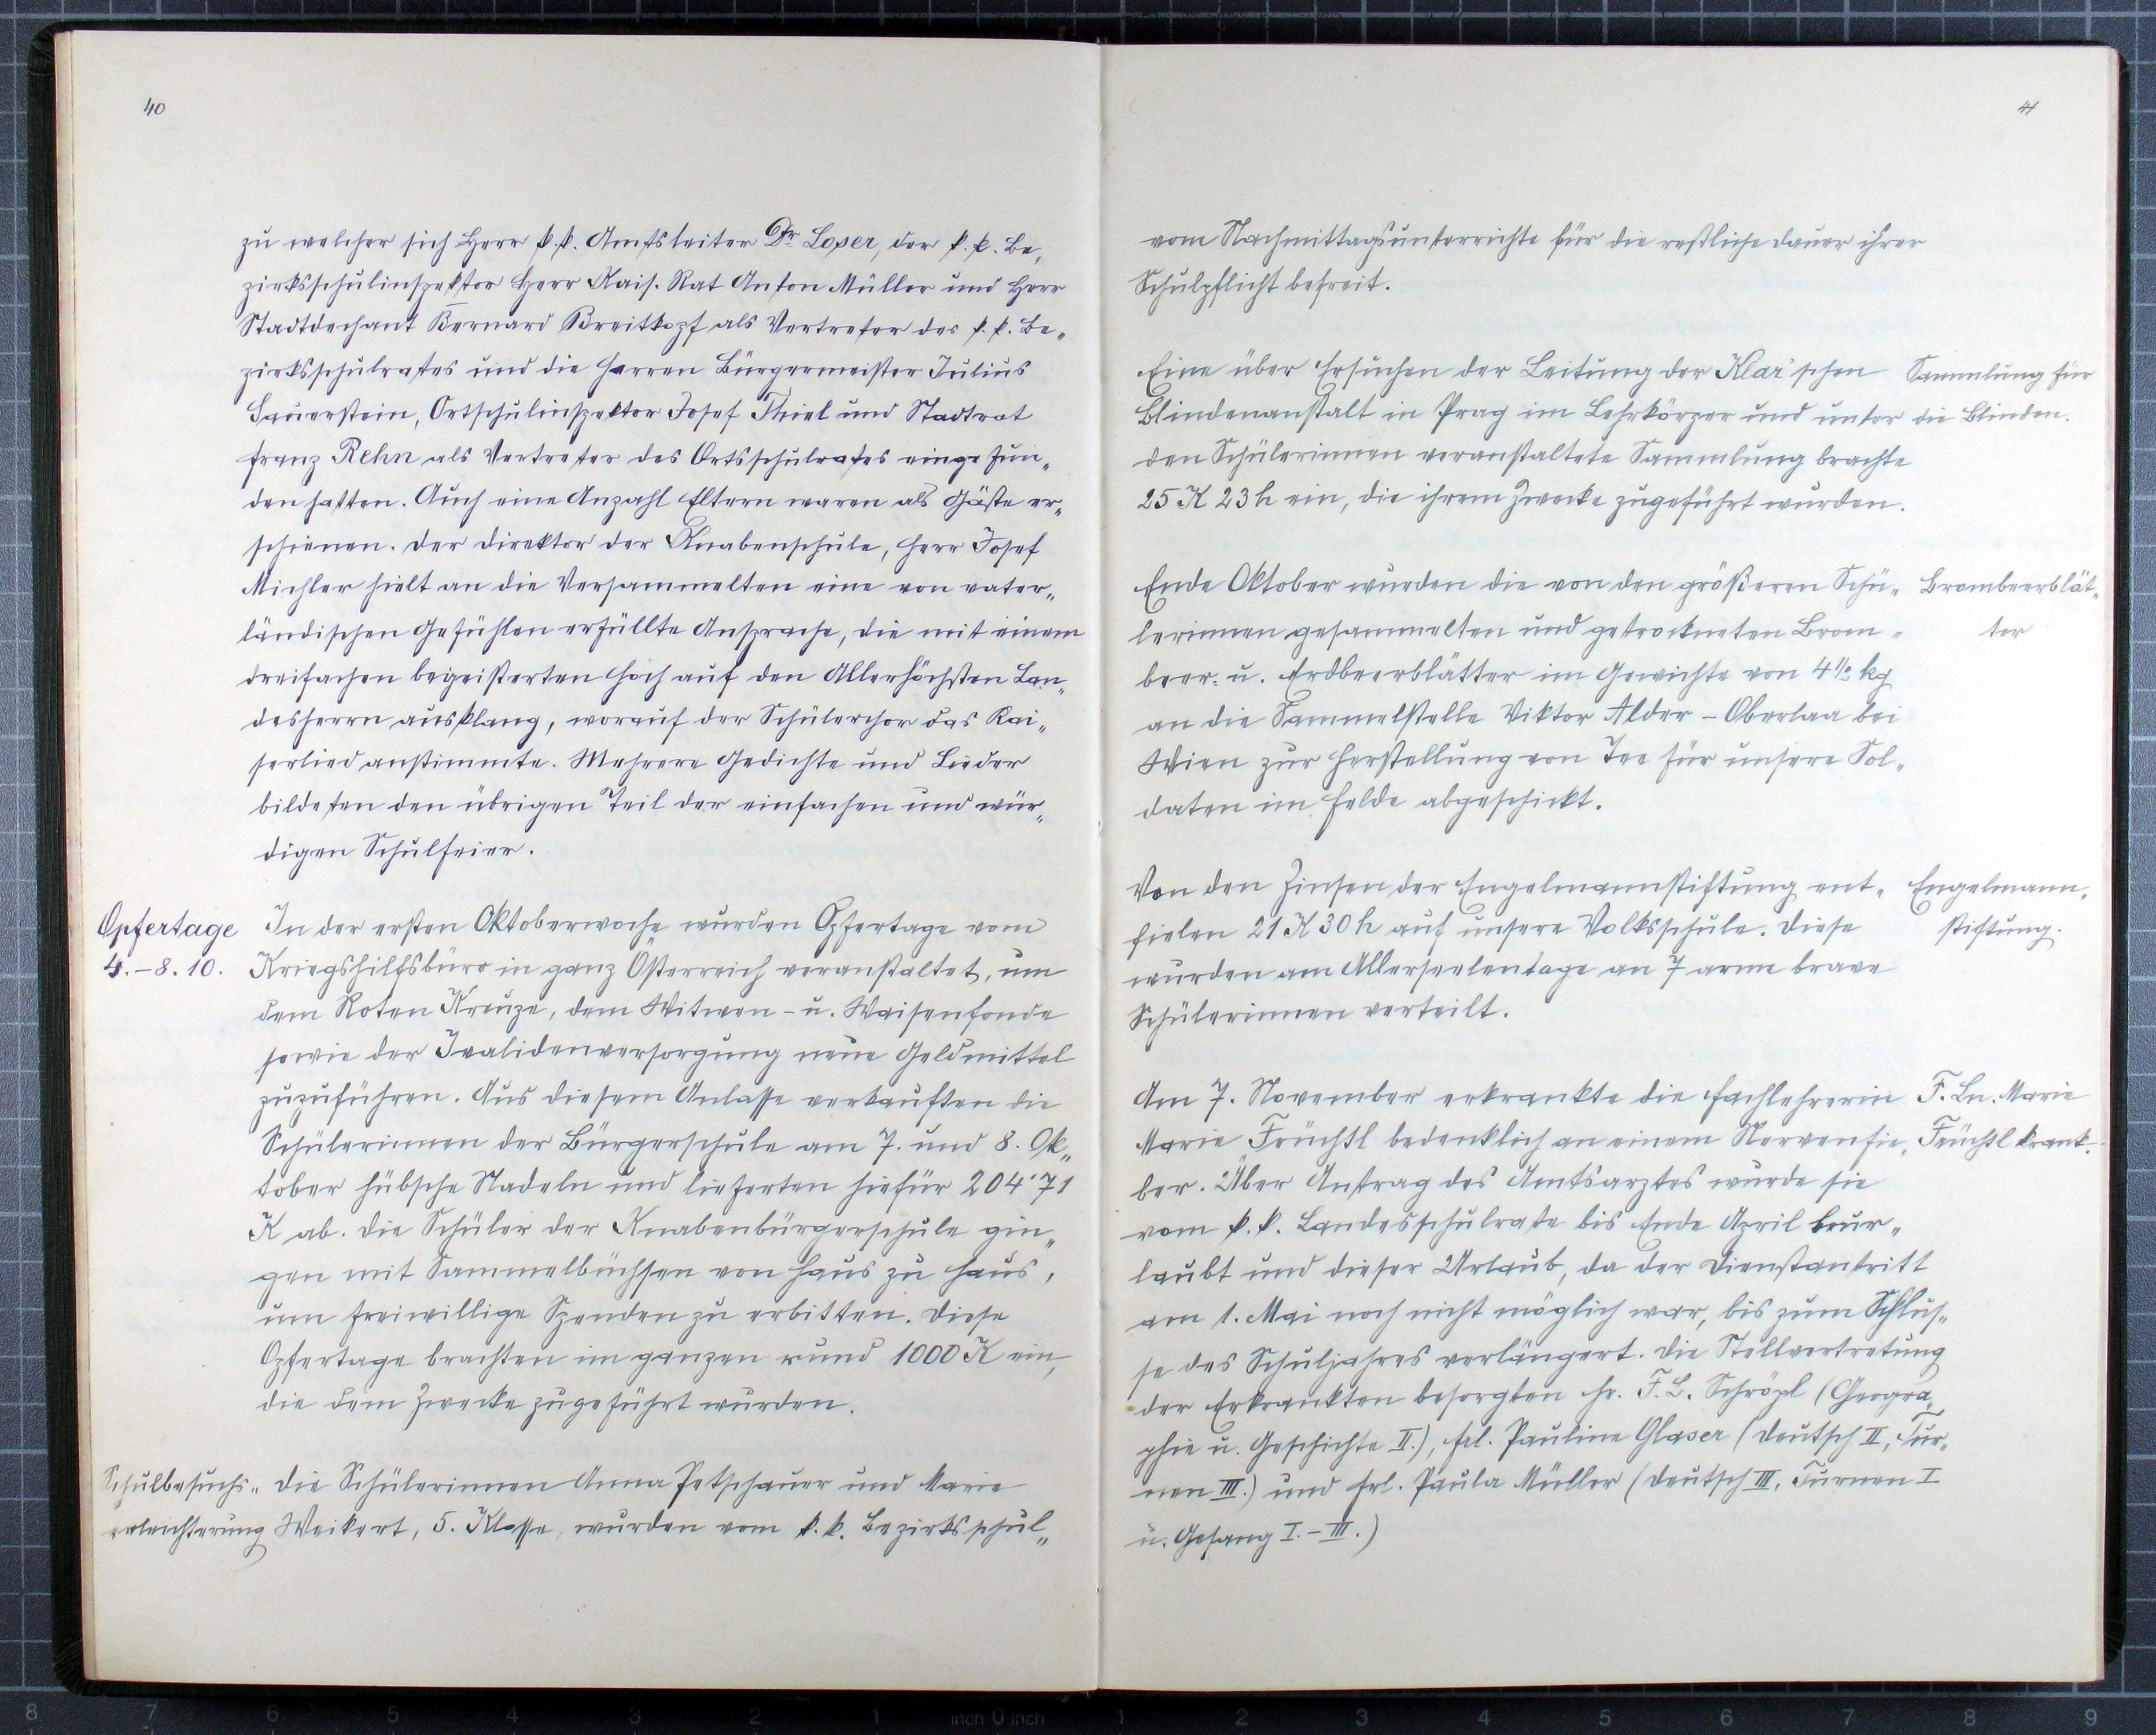 40
zu welcher sich Herr k.k. Amtsleiter Dr. Loser, der k.k. Be„
zirksschulinspektor Herr Kais. Rat Anton Müller und Herr
Stadtdechant Bernard Breitkopf als Vertreter des k.k. Be„
zirksschulrates und die Herren Bürgermeister Julius
Sauerstein, Ortschulinspektor Josef Thiel und Stadtrat
Franz Rehn als Vertreter des Ortsschulrates eingefun„
den hatten. Auch eine Anzahl Eltern waren als Gäste er„
schienen. Der Direktor der Knabenschule, Herr Josef
Michler hielt an die Versammelten eine von vater„
ländischen Gefühlen erfüllte Ansprache, die mit einem
dreifachen begeisterten Hoch auf den Allerhöchsten Lan„
desherrn ausklang, worauf der Schülerchor das Kai„
serlied anstimmte. Mehrere Gedichte und Lieder
bildeten den übrigen Teil der einfachen und wür„
digen Schulfeier.
Opfertage
4.-8.10.
In der ersten Oktoberwoche wurden Opfertage vom
Kriegshilfsbüro in ganz Österreich veranstaltet, um
dem Roten Kreuze, dem Witwen- u. Waisenfonde
sowie der Ivalidenversorgung neue Geldmittel
zuzuführen. Aus diesem Anlasse verkauften die
Schülerinnen der Bürgerschule am 7. und 8. Ok„
tober hübsche Nadeln und lieferten hiefür 204'71
K ab. Die Schüler der Knabenbürgerschule gin„
gen mit Sammelbüchsen von Haus zu Haus,
um freiwillige Spenden zu erbitten. Diese
Opfertage brachten im ganzen rund 1000 K ein,
die dem Zwecke zugeführt wurden.
Schulbesuchs„
erleichterung
Die Schülerinnen Anna Petschauer und Marie
Weikert, 5. Klasse, wurden vom k.k. Bezirksschul„
41
vom Nachmittagsunterrichte für die restliche Dauer ihrer
Schulpflicht befreit.
Eine über Ersuchen der Leitung der Klar'schen
Blindenanstalt in Prag im Lehrkörper und unter
den Schülerinnen veranstaltete Sammlung brachte
25 K 23 h ein, die ihrem Zwecke zugeführt wurden.
Sammlung für
die Blinden.
Ende Oktober wurden die von den größeren Schü„
lerinnen gesammelten und getrockneten Brom„
beer- u. Erdbeerblätter im Gewichte von 4 1/2 kg
an die Sammelstelle Viktor Alder - Oberlaa bei
Wien zur Herstellung von Tee für unsere Sol„
daten im Felde abgeschickt.
Brombeerblät„
ter
Von den Zinsen der Engelmannstiftung ent„
fielen 21 K 30 h auf unsere Volksschule. Diese
wurden am Allerseelentage an 7 arme brave
Schülerinnen verteilt.
Engelmann„
stiftung.
Am 7. November erkrankte die Fachlehrerin
Marie Früchtl bedenklich an einem Nervenfie„
ber. Über Antrag des Amtsarztes wurde sie
vom k.k. Landesschulrate bis Ende April beur„
laubt und dieser Urlaub, da der Dienstantritt
am 1. Mai noch nicht möglich war, bis zum Schlus„
se des Schuljahres verlängert. Die Stellvertretung
der Erkrankten besorgten Hr. F.L. Schröpl (Geogra„
phie u. Geschichte II.), Frl. Pauline Glaser (Deutsch II, Tur„
nen III.) und Frl. Paula Müller (Deutsch III, Turnen I
u. Gesang I.-III.)
F. Ln. Marie
Früchtl krank.